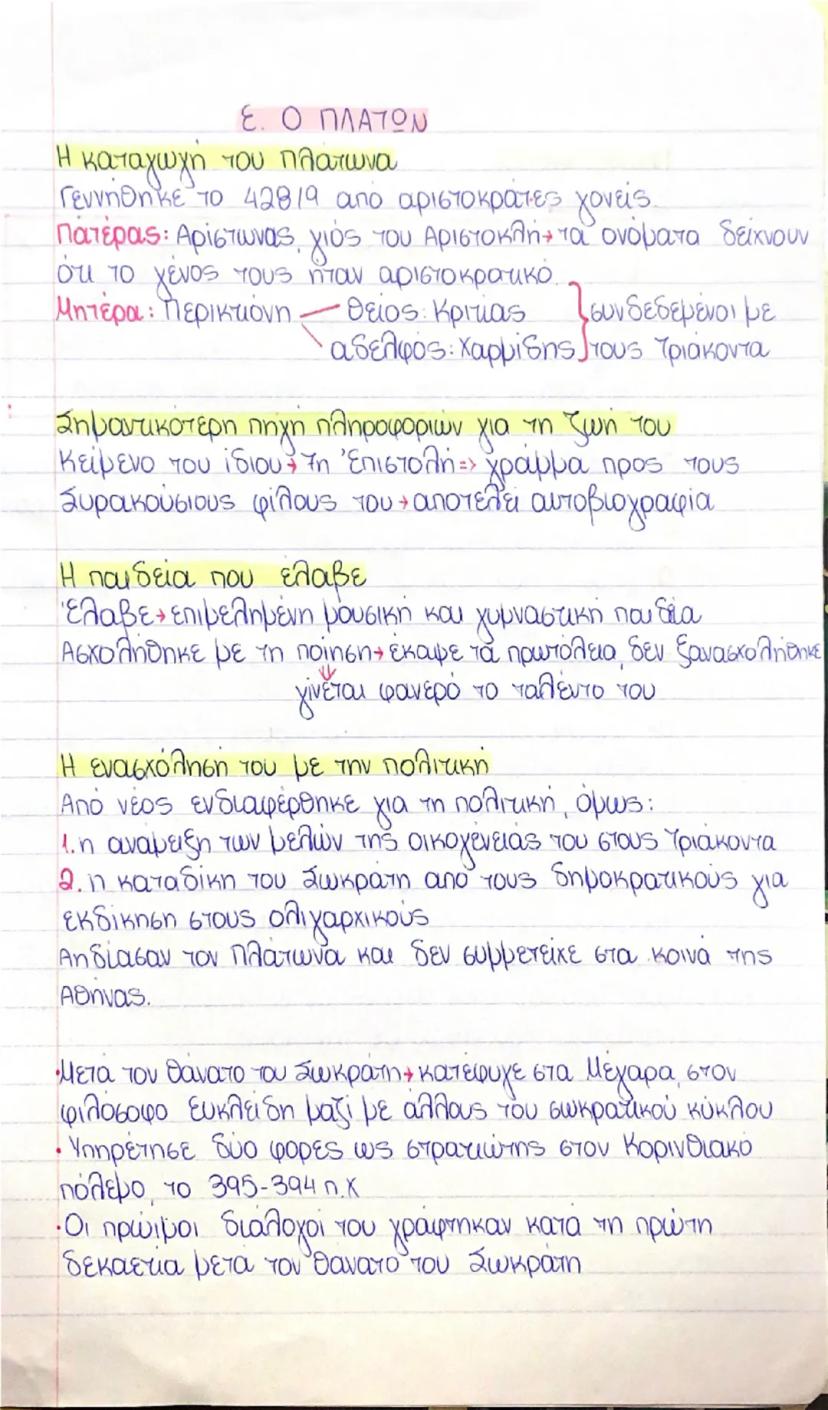 Ε. Ο ΠΛΑΤΩΝ
Η καταγωγή του Πλάτωνα
Γεννήθηκε το 428/9 από αριστοκράτες γονείς.
Πατέρας: Αρίστωνας, γιός του Αριστοκλή→τα ονόματα δείχνουν
ότι το γένος τους ήταν αριστοκρατικό.
Μητέρα: Περικτιόνη θείος: Κριτίας συνδεδεμένοι με
αδελφός: Χαρμίδης τους Τριάκοντα
Σημαντικότερη πηγή πληροφοριών για τη ζωή του
Κείμενο του ίδιου→7η Έπιστολή=> γράμμα προς τους
Συρακούσιους φίλους του→αποτελεί αυτοβιογραφία
Η παιδεία που έλαβε
Έλαβε→επιμελημένη μουσική και γυμναστική παιδία
Ασχολήθηκε με τη ποίηση→έκαψε τα πρωτόλεια, δεν ξανασχολήθηκε
γίνεται φανερό το ταλέντο του
Η ενασχόλησή του με την πολιτική
Από νέος ενδιαφέρθηκε για τη πολιτική, όμως:
1. η ανάμειξη των μελών της οικογένειάς του στους Τριάκοντα
2. η καταδίκη του Σωκράτη από τους δημοκρατικούς για
εκδίκηση στους ολιγαρχικούς
Αηδίασαν τον Πλάτωνα και δεν συμμετείχε στα κοινά της
Αθήνας.
•Μετά τον θάνατο του Σωκράτη→κατέφυγε στα Μέγαρα, στον
φιλόσοφο Ευκλείδη μαζί με άλλους του σωκρατικού κύκλου
• Υπηρέτησε δύο φορές ως στρατιώτης στον Κορινθιακό
πόλεμο, το 395-394 π.Χ
•Οι πρώιμοι διάλογοί του γράφτηκαν κατά τη πρώτη
δεκαετία μετά τον θάνατο του Σωκράτη